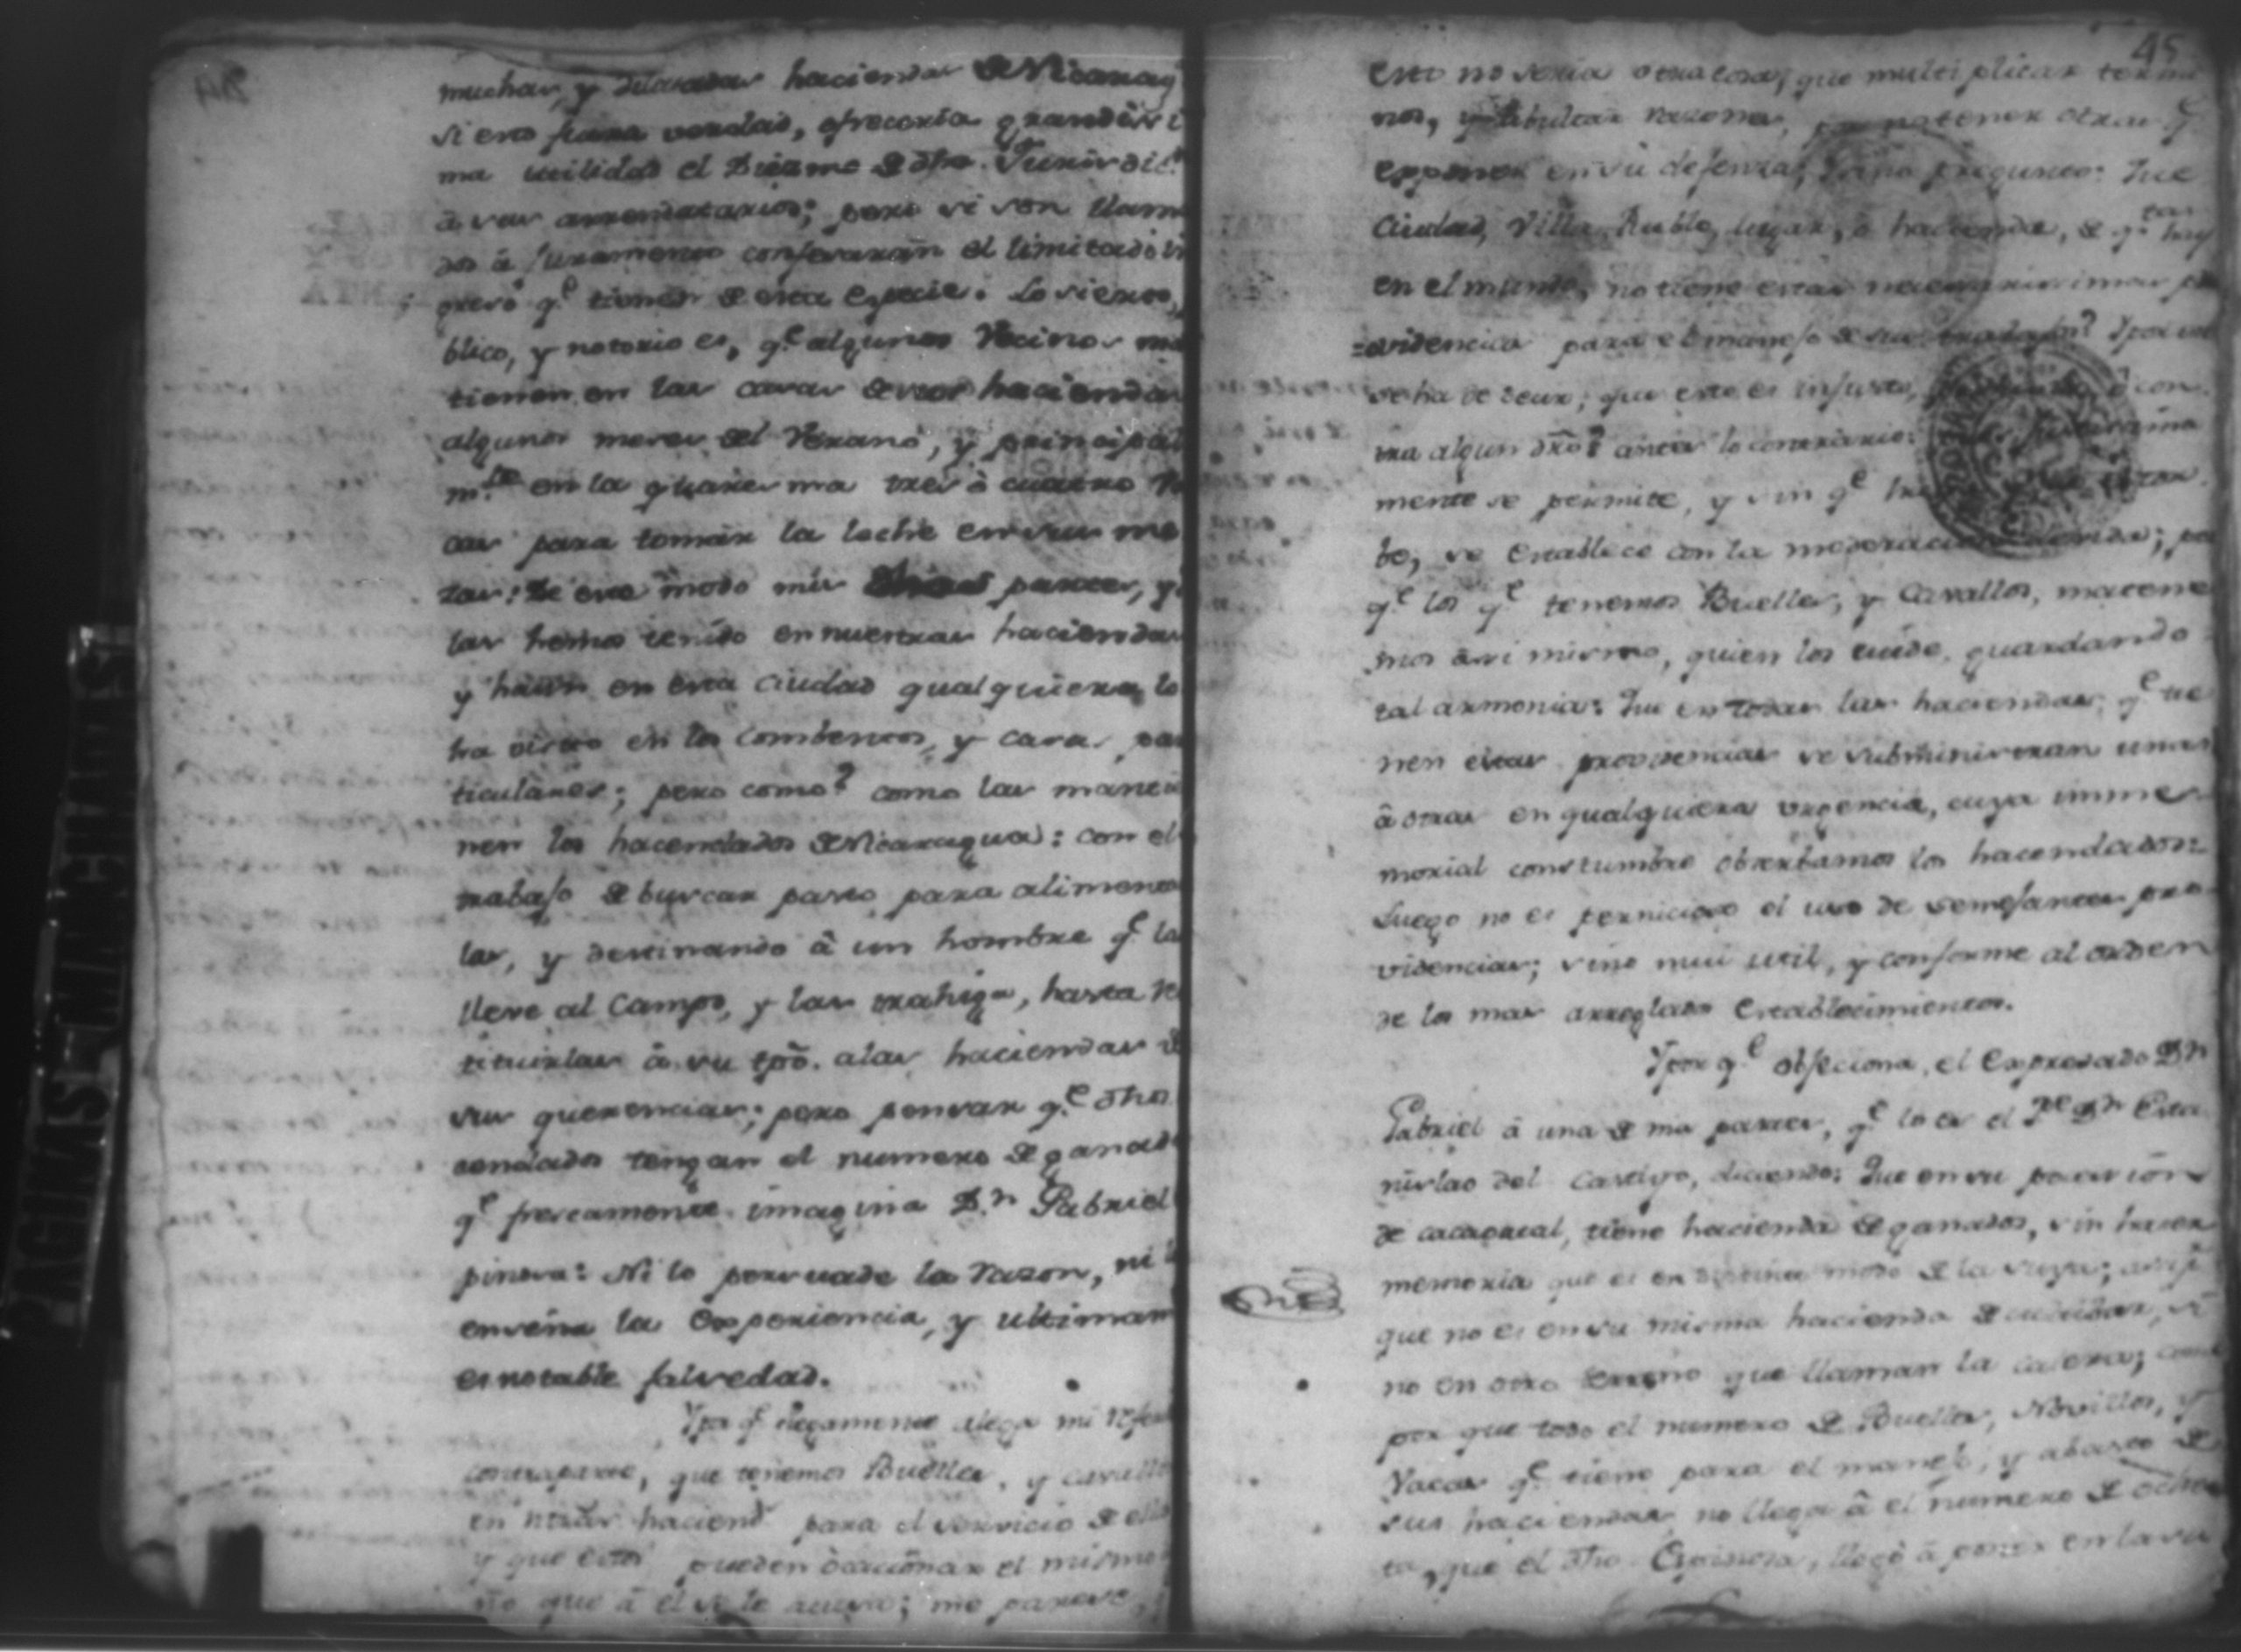 muchas, y dilatadas haciendas de Nicarag
si esto fuera verdad, ofreceria grandissi
ma utilidad el Diezmo de dha. Jurisdic.n
â sus arrematarios; pero si son llama
dos â juramento confesaràn el limitado in
greso q.e tienen de esta especie. Lo cierto,
blico, y notorio es, q.e algunos Vecinos ma
tienen en las casas de sus haciendas
algunos meses del Verano, y principal
m.te en la quaresma tres ò cuatro Va
cas para tomar la leche en sus me
zas: De este modo mis partes, y
las hemos tenido en nuestras haciendas
y haun en esta Ciudad qualquiera lo
ha visto en los Combentos, y casas par
ticulares; pero como? como las mantie
nen los hacendados de Nicaragua: con el
trabajo de buscar pasto para alimentar
las, y destinando â un hombre q.e las
lleve al Campo, y las trahiga, hasta res
tituirlas â su tpô. alas haciendas de
sus querencias; pero pensar q.e dhos
cendados tengan el numero de ganado
q.e frescamente imagina D.n Gabriel
pinosa: Ni lo persuade la razon, ni l
enseña la experiencia, y ultimam
es notable falsedad.
Y por q.e ciegamente alega mi refer
contraparte, que tenemos Bueìes, y cavallos
en ntras. haciend.s para el servicio de ellas
y que estos pueden ocacionar el mismo
ño que â el se le acusa; me parese,
45
esto no seria otra cosa, que multiplicar termi
nos, y abultar razones, por no tener otras q.e
exponer en su defensa, y sino pregunto: Que
Ciudad, Villa, Pueblo, lugar, ò hacienda, de q.tas hay
en el mundo, no tiene estas necesarissimas pro
=videncias para el manejo de sus trabajos? Y por esto
se ha de decir; que esto es injusto, ô con
tra algun drô? antes lo contrario:
mente se permite, y sin q.e
be, se establece con la moderacion devida; por
q.e los q.e tenemos Bueìes, y Cavallos, mantene
mos asi mismo, quien los cuide, guardando
tal armonia: Que en todas las haciendas q.e tie
nen estas providencias se subministran unas
â otras en qualquiera urgencia, cuya imme
morial constumbre observamos los hacendados:
Luego no es pernicioso el uso de semejantes pro
videncias; sino mui util, y conforme al orden
de los mas arreglados Establecimientos.
Y por q.e objeciona, el expresado D.n
Gabriel â una de mis partes, q.e lo es el P.e D.n Esta
nislao del Castigo, diciendo: Que en su pocesion
de cacaoreal, tiene hacienda de ganados, sin hacer
memoria que es en distinto modo de la suya; assi p.r
que no es en su misma hacienda de cuidar, si
no en otro terreno que llaman la calera; como
por que todo el numero de Bueìes, Novillos, y
Vacas q.e tiene para el manejo, y abasto de
sus haciendas, no llega â el numero de ochen
ta, que el dho Espinosa, llegò â poner en la su